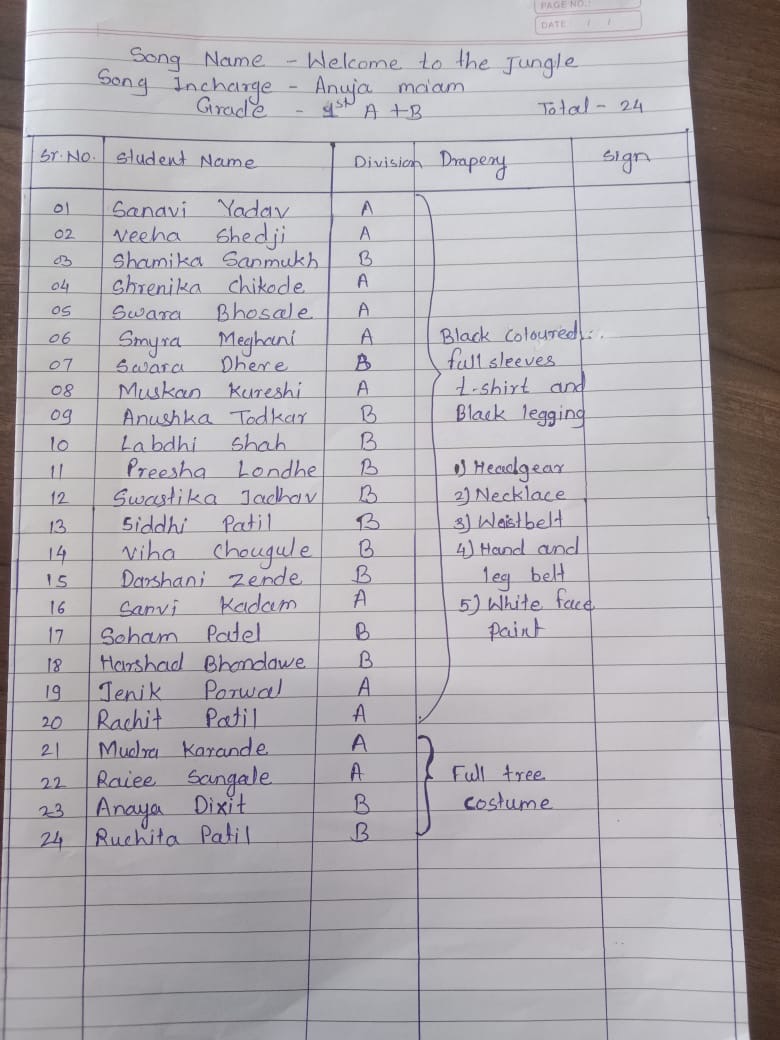 PAGE NO.:
DATE / /
Song Name - Welcome to the Jungle
Song Incharge - Anuja maam
Grade - 1st A + B Total - 24
Sr. No. Student Name Division Drapery Sign
01 Sanavi Yadav A
02 Veeha Shedji A
03 Shamika Sanmukh B
04 Shrenika Chikode A
05 Swara Bhosale A
06 Smyra Meghani A Black Coloured
07 Swara Dhere B full sleeves
08 Muskan Kureshi A t-shirt and
09 Anushka Todkar B Black legging
10 Labdhi Shah B
11 Preesha Londhe B 1) Headgear
12 Swastika Jadhav B 2) Necklace
13 Siddhi Patil B 3) Waistbelt
14 Viha Chougule B 4) Hand and
15 Darshani Zende B leg belt
16 Sanvi Kadam A 5) White face
17 Soham Patel B Paint
18 Harshad Bhondawe B
19 Jenik Porwal A
20 Rachit Patil A
21 Mudra Karande A
22 Raiee Sangale A Full tree
23 Anaya Dixit B costume
24 Ruchita Patil B